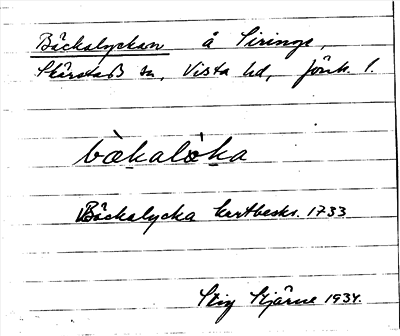 Bäckalyckan å Siringe,
Skärstad sn, Vista hd, Jönk. l.
bæ̀kalòka
Bäckalycka kartbeskr. 1733
Stig Stjärne 1934.